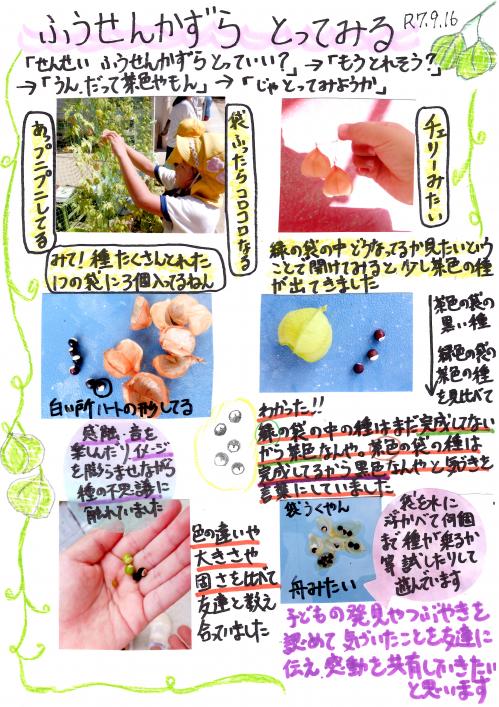 ふうせんかずら とってみる R7.9.16
「せんせい ふうせんかずら とっていい?」→「もうとれそう?」
→「うん、だって茶色やもん」→「じゃとってみようか」
あっプニプニしてる
袋ふたらコロコロなる
チェリーみたい
みて!種たくさんとれた
1つの袋に3個入ってるねん
緑の袋の中どうなってるか見たいという
ことで開けてみると少し茶色の種
が出てきました
茶色の袋の
黒い種
緑色の袋の
茶色の種
を見比べて
白い所ハートの形してる
わかった!!
緑の袋の中の種はまだ完成してない
から茶色なんや。茶色の袋の種は
完成してるから黒色なんやと気づきを
言葉にしていました
感触、音を
楽しんだりイメージ
を膨らませながら
種の不思議に
触れていました
色の違いや
大きさや
固さを比べて
友達と数え
合っていました
袋うくやん
舟みたい
袋を水に
浮かべて何個
まで種が乗るか
試したりして
遊んでいます
子どもの発見やつぶやきを
認めて気づいたことを友達に
伝え、感動を共有していきたい
と思います